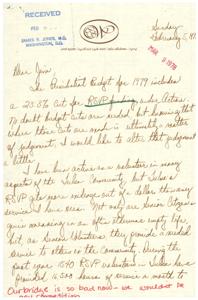 RECEIVED
FEB
JAMES R. JONES, M.C.
WASHINGTON, D.C.
Sunday
February 5, 197
MAR 3 1978
Dear Jim
The Presidential Budget for 1979 includes
a 23.5% cut for RSVP under Action.
No doubt budget cuts are needed, but knowing that
where those cuts are made is ultimately a matter
of judgment, I would like to alter that judgment
a little.
I have been active as a volunteer in many
aspects of the Tulsa Community, but Tulsa's
RSVP gets more mileage out of a dollar than any
service I have seen. Not only are Senior Citizens
given meaning in an often otherwise empty life,
but, as Senior Volunteers, they provide a needed
service to others in the community. During the
past year RSVP volunteers in Tulsa have
provided hours of service a month to
Our bridge is so bad now - we would be
new competition